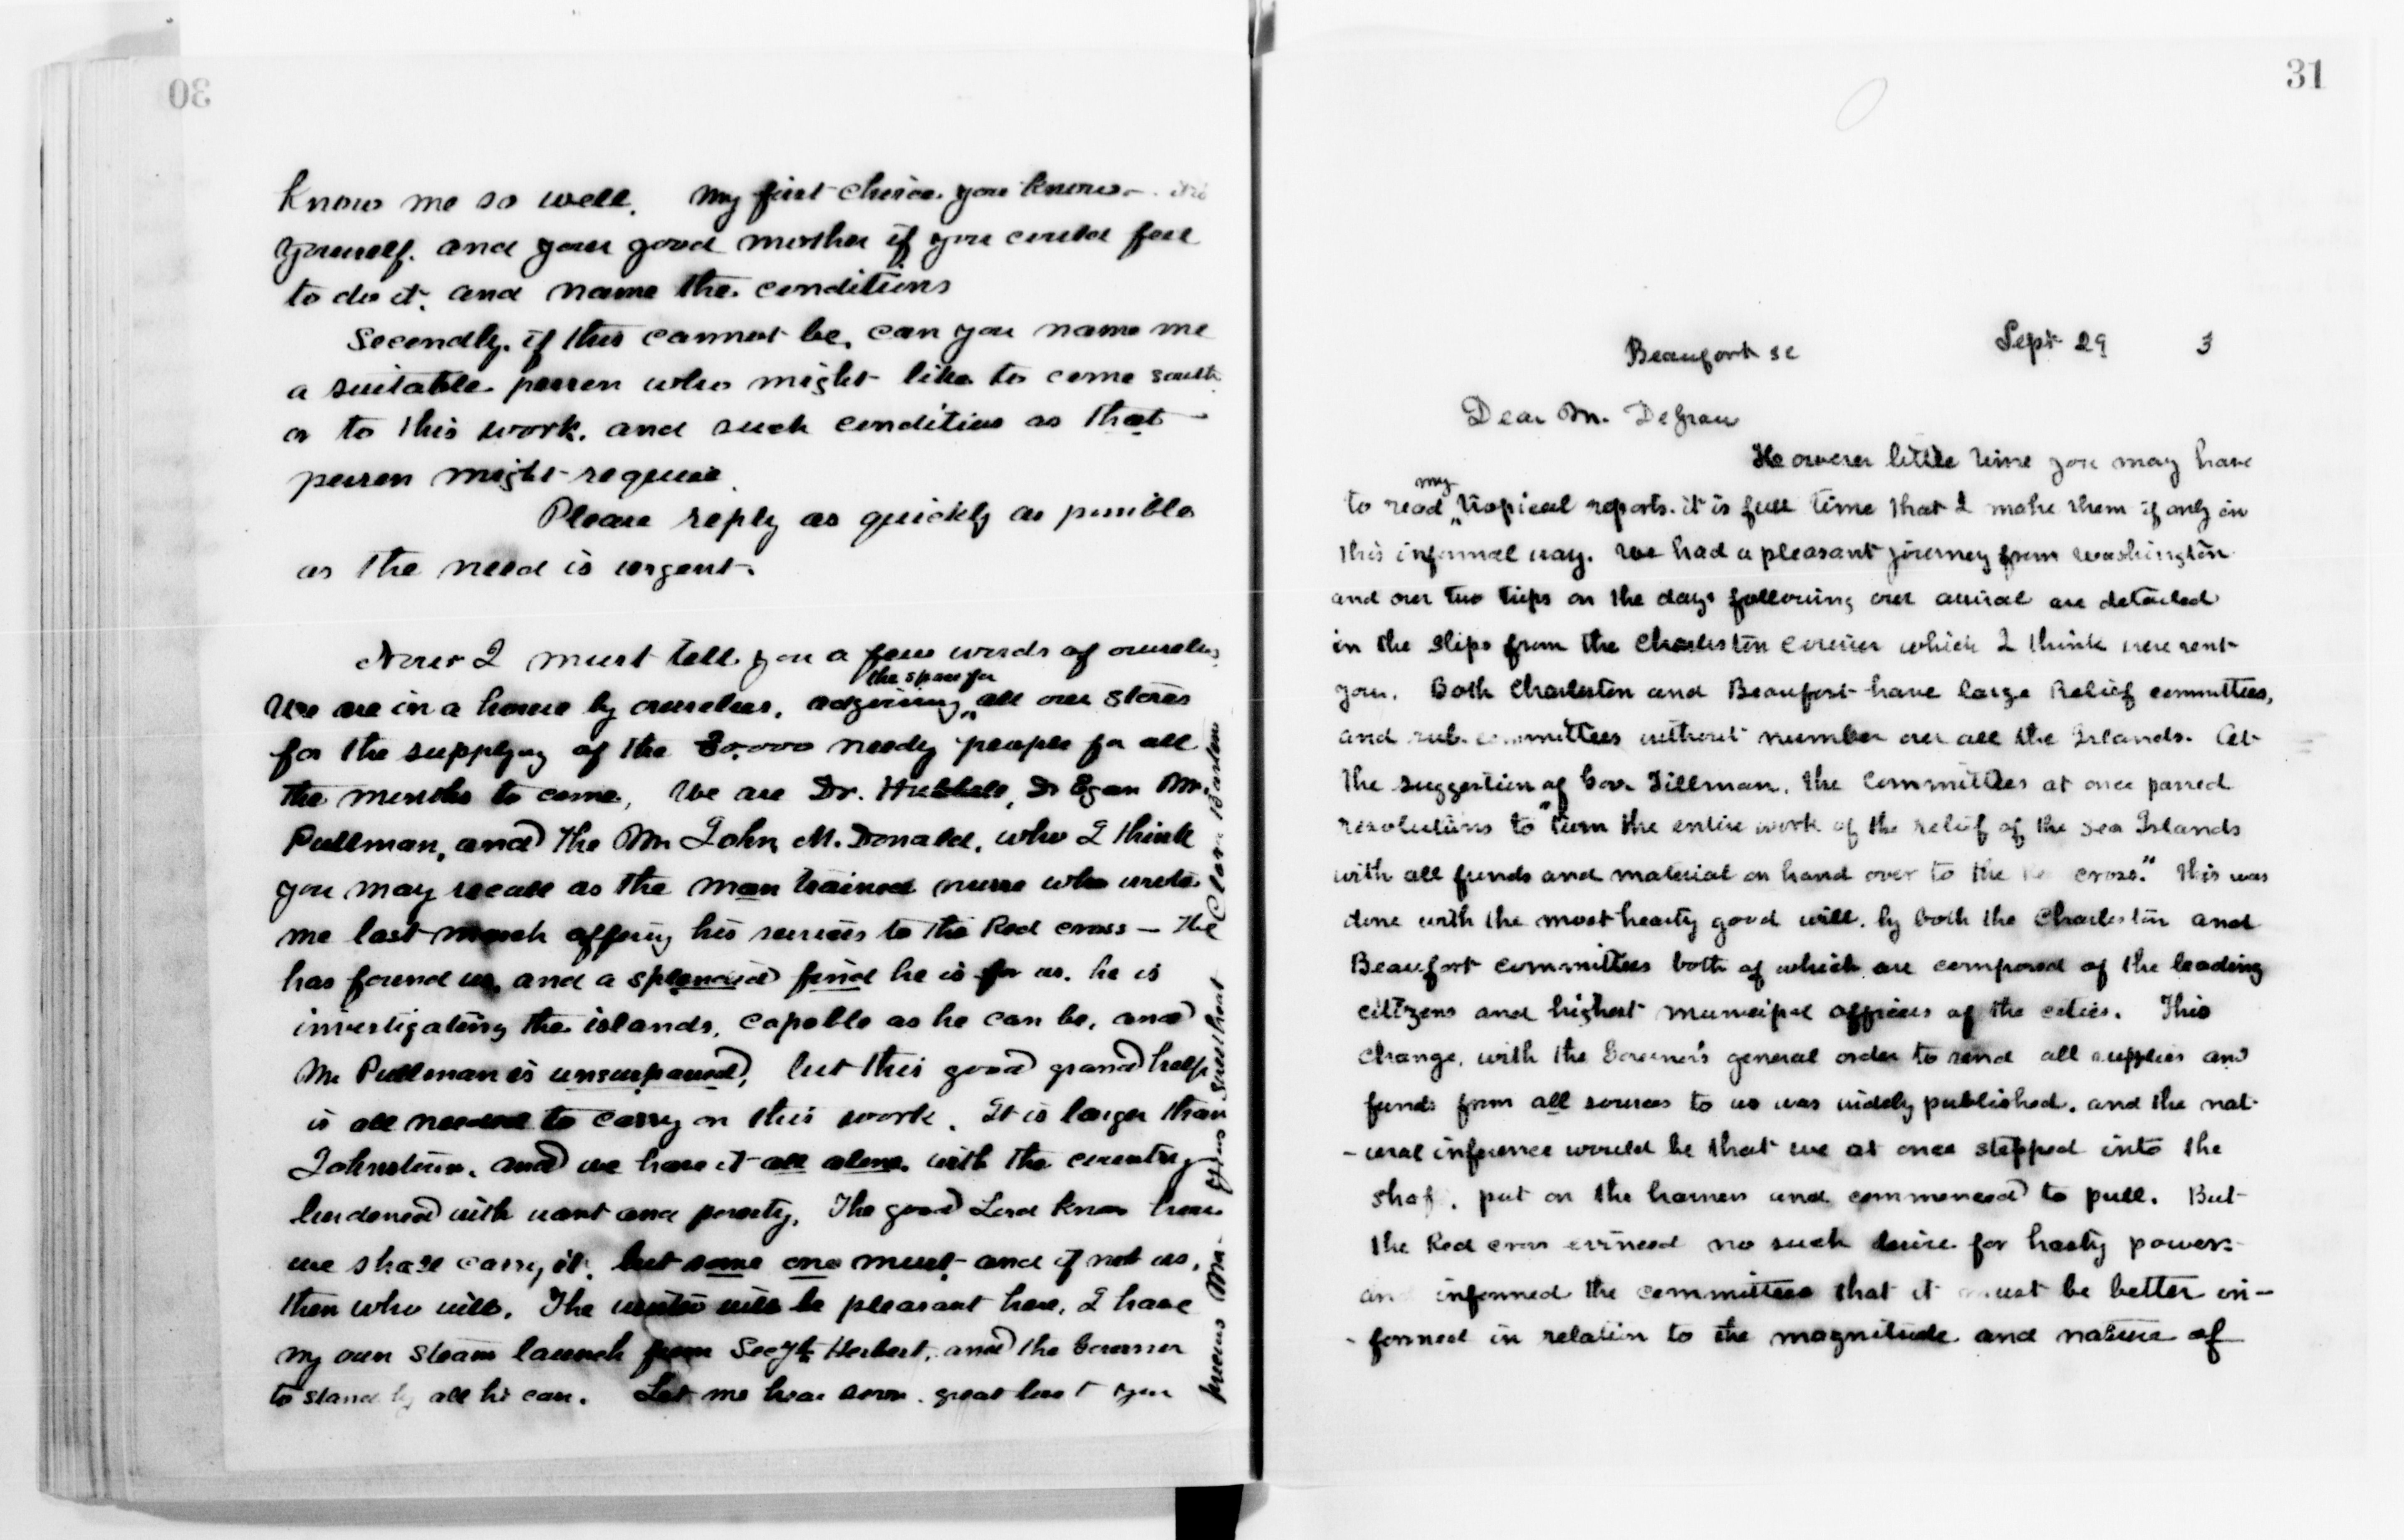 30
know me so well. My first choice you know
yourself. and your good mother if you could feel
to do it. and name the conditions
Secondly. if this cannot be, can you name me
a suitable person who might like to come south
or to this work. and such conditions as that
person might require.
Please reply as quickly as possible
as the need is urgent.
Now I must tell you a few words of ourselves
the space for
We are in a house by ourselves, adjoining all our stores
for the supplying of the 30.000 needy people for all
the months to come, We are Dr. Hubbell, Dr Egan Mr.
Pullman, and the Mr John McDonald, who I think
you may recall as the man trained nurse who wrote
me last march offering his services to the Red cross — He
has found us, and a splendid find he is for us. he is
investigating the islands, capable as he can be, and
Mr Pullman is unsurpassed, but this good grand help
is all needed to carry on this work. It is larger than
Johnstown. and we have it all alone. with the country
burdened with want and poverty, The good Lord knows how
we shall carry it, but some one must and if not us,
then who will. The winter will be pleasant here, I have
my own steam launch from Secy Herbert, and the Governor
to stand by all he can. Let me hear soon. great love to you
Clara Barton
31
Beaufort SC Sept 29 3
Dear Mr. DeGraw
However little time you may have
my
to read topical reports. it is full time that I make them if only in
this informal way. We had a pleasant journey from Washington
and our two trips on the days following our arrival are detailed
in the slips from the Charleston Courier which I think were sent
you. Both Charleston and Beaufort have large Relief committees,
and sub. committees without number over all the Islands. At
the suggestion of Gov. Tillman, the Committees at once passed
resolutions to "turn the entire work of the relief of the Sea Islands
with all funds and material on hand over to the Red cross." This was
done with the most hearty good will, by both the Charleston and
Beaufort committees both of which are composed of the leading
citizens and highest municipal officers of the cities. This
change, with the Governor's general order to send all supplies and
funds from all sources to us was widely published, and the nat-
-ural inference would be that we at once stepped into the
shaf , put on the harness and commenced to pull. But
the Red cross evinced no such desire for hasty power:
and informed the committees that it must be better in-
-formed in relation to the magnitude and nature of